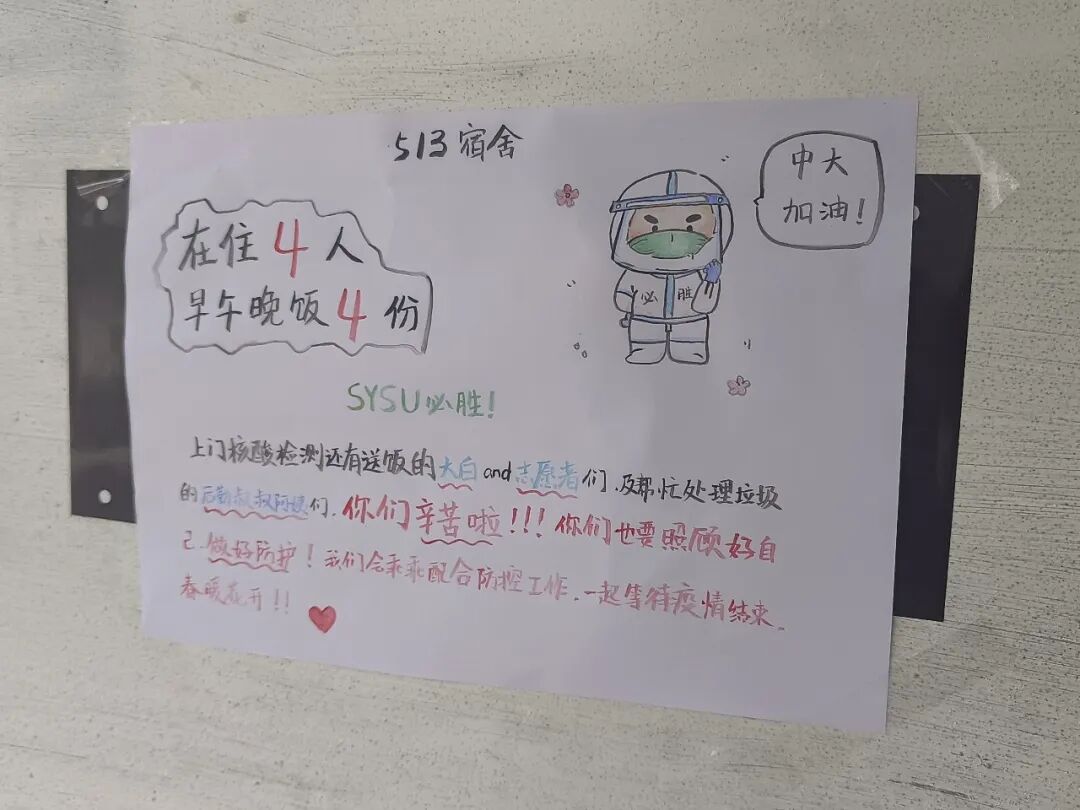 513宿舍
在住4人
早午晚饭4份
中大
加油!
必 胜
SYSU必胜!
上门核酸检测还有送饭的大白and志愿者们,及帮忙处理垃圾
的后勤叔叔阿姨们,你们辛苦啦!!!你们也要照顾好自
己,做好防护!我们会乖乖配合防控工作,一起等待疫情结束,
春暖花开!!